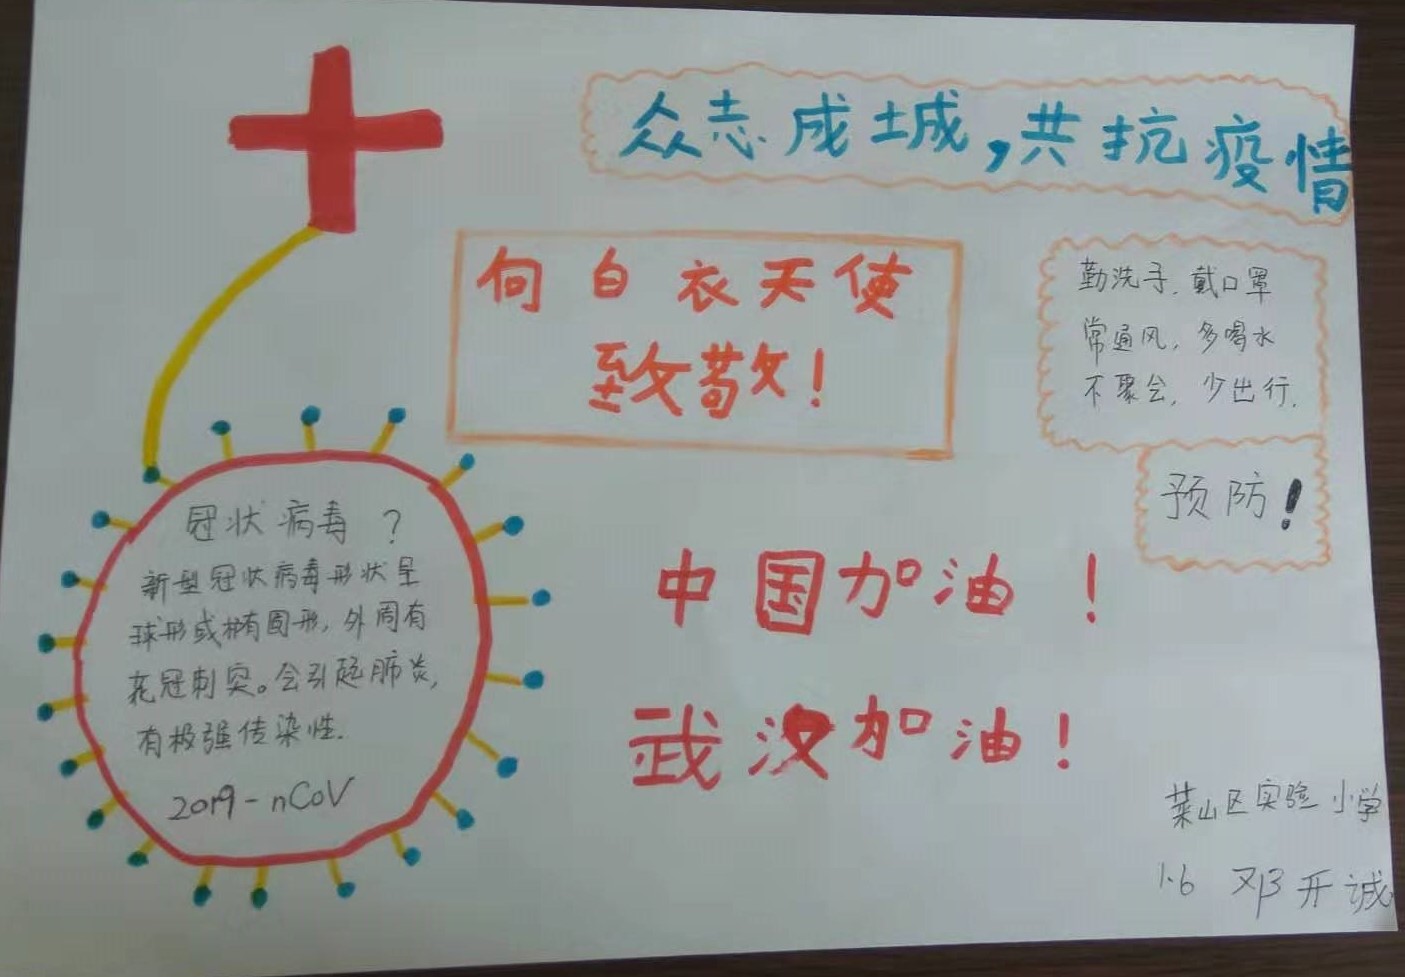 众志成城,共抗疫情
向白衣天使
致敬!
勤洗手.戴口罩
常通风,多喝水
不聚会,少出行.
预防!
冠状病毒?
新型冠状病毒形状呈
球形或椭圆形,外周有
花冠刺突。会引起肺炎,
有极强传染性.
2019-nCoV
中国加油!
武汉加油!
莱山区实验小学
1.6 邓开诚